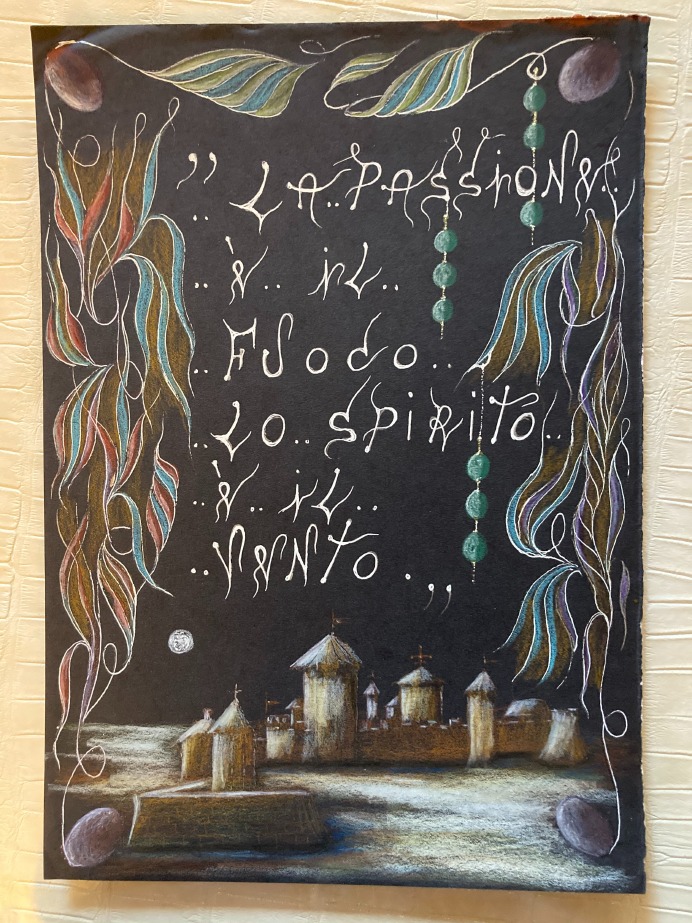 ,, LA..PASSiONE..
..È.. iL..
..FUoco..
..LO..SPiRiTO..
..È.. iL..
..VENTO.,,